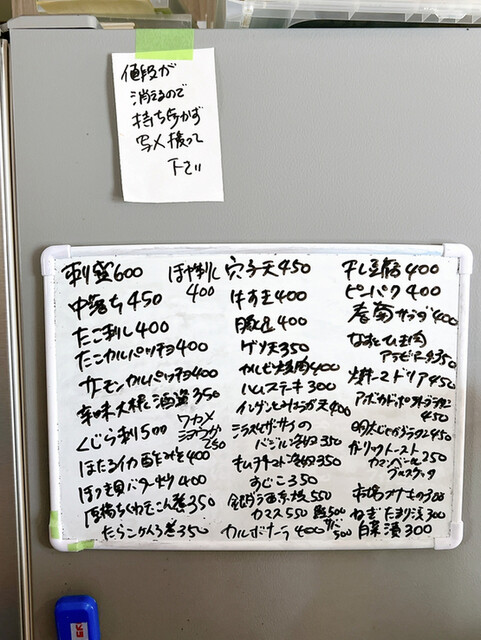 値段が
消えるので
持ち歩かず
写メ撮って
下さい
刺盛600
中落ち450
たこ刺し400
たこカルパッチョ400
サーモンカルパッチョ400
辛味大根と酒盗350
くじら刺500
ほたるイカ酢みそ400
ほっき貝バター炒400
厚揚ちくわきんこん巻350
たらこいくら巻350
ほや刺し
400
ワカメ
ミョウガ
250
穴子天450
はすき400
豚足400
ゲソ天350
カルビ焼肉400
ハムステーキ300
インゲンとみょうが天400
シラスとザーサイの
バジル冷奴350
キムチトマト冷奴350
すじこ350
銀ダラ西京焼550
カマス550 鮭500
カルボナーラ400
500
干し豆腐400
ピータン400
春菊サラダ400
なすとひき肉
アラビアータ350
焼チーズドリア450
アボカドポテトグラタン
450
明太じゃがグラタン450
ガーリックトースト
カマンベール250
ブルスケッタ
300
ねぎたまり漬300
白菜漬300